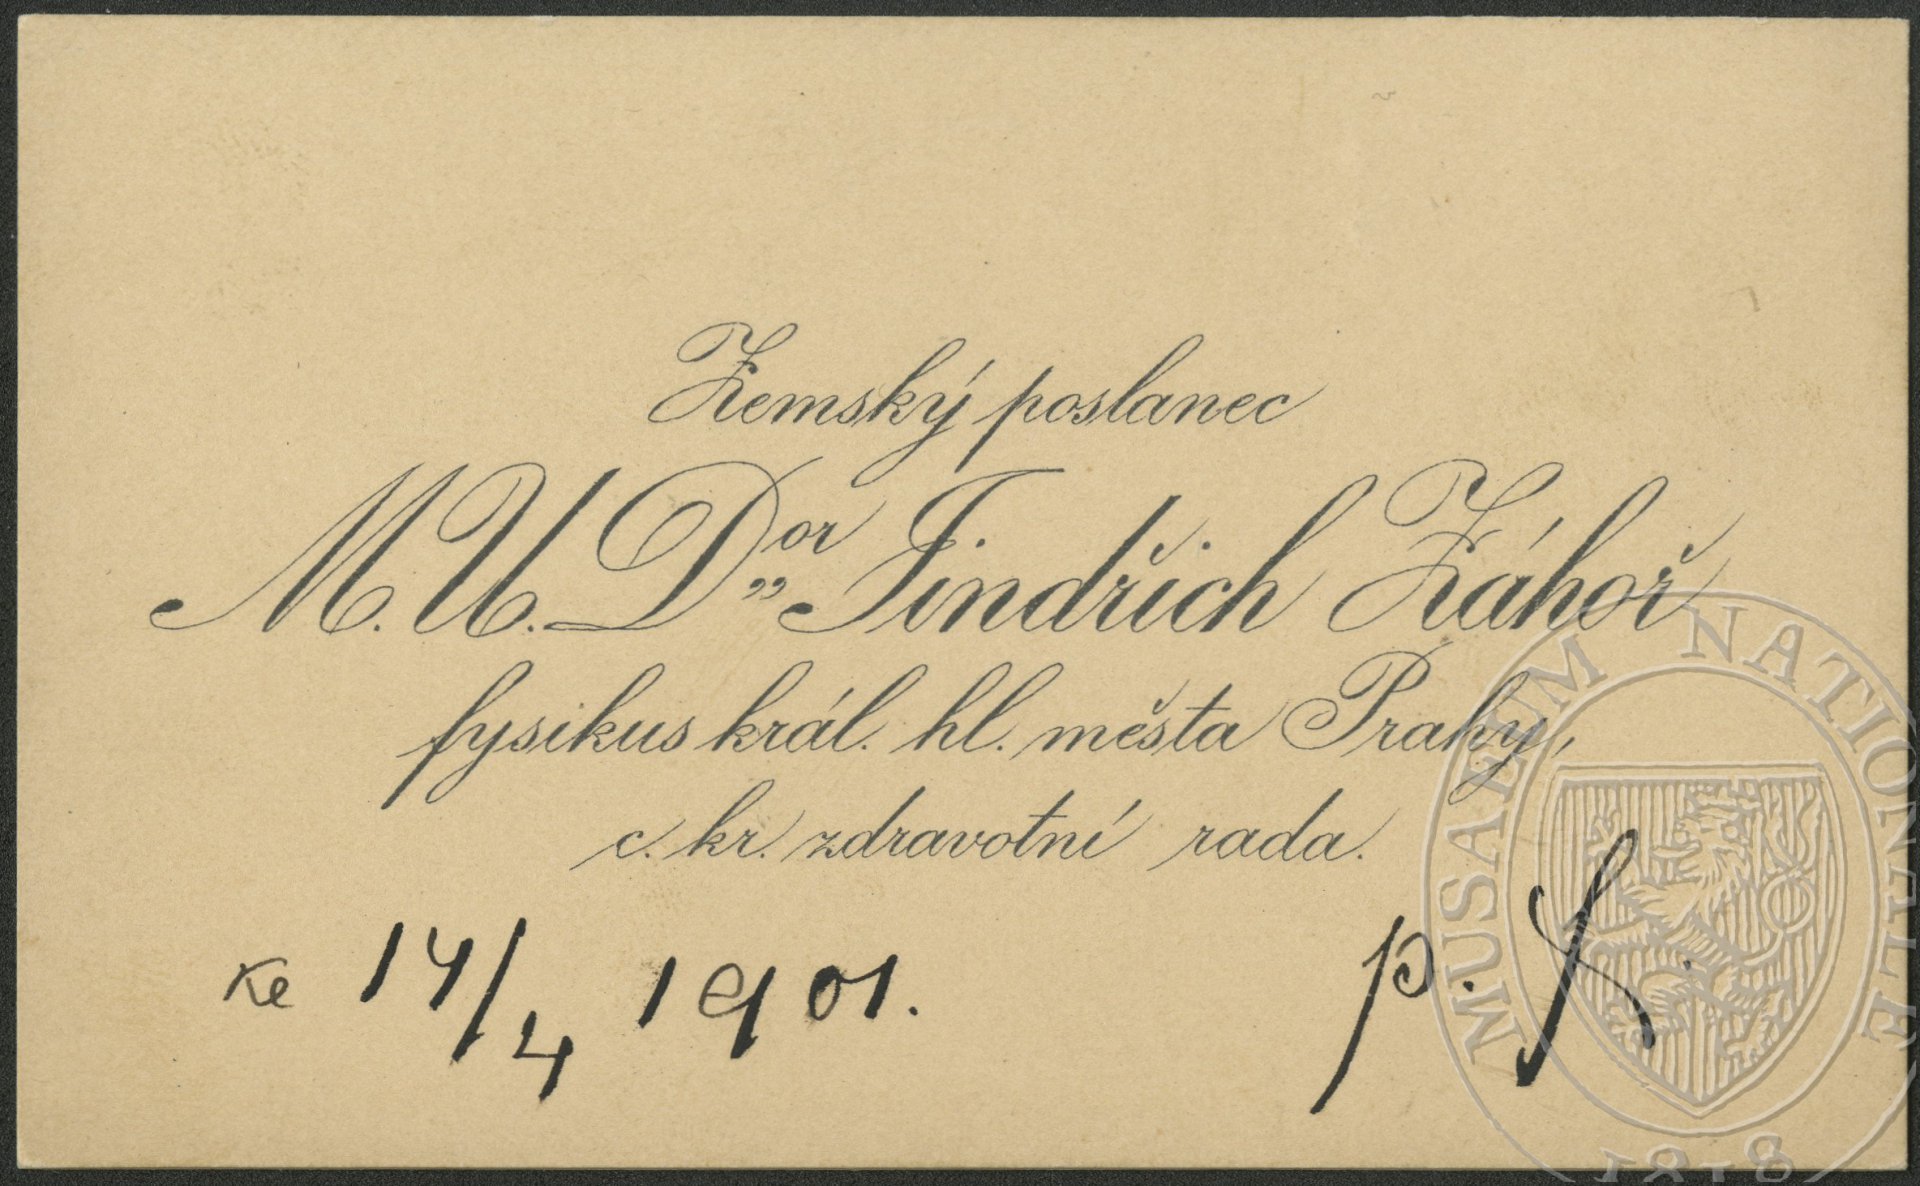 Zemský poslanec
M. U. Dor Jindřich Záhoř
fysikus král. hl. města Prahy,
c. kr. zdravotní rada.
Ke 14/4 1901. p. f.
MUSAEUM NATIONALE
1818